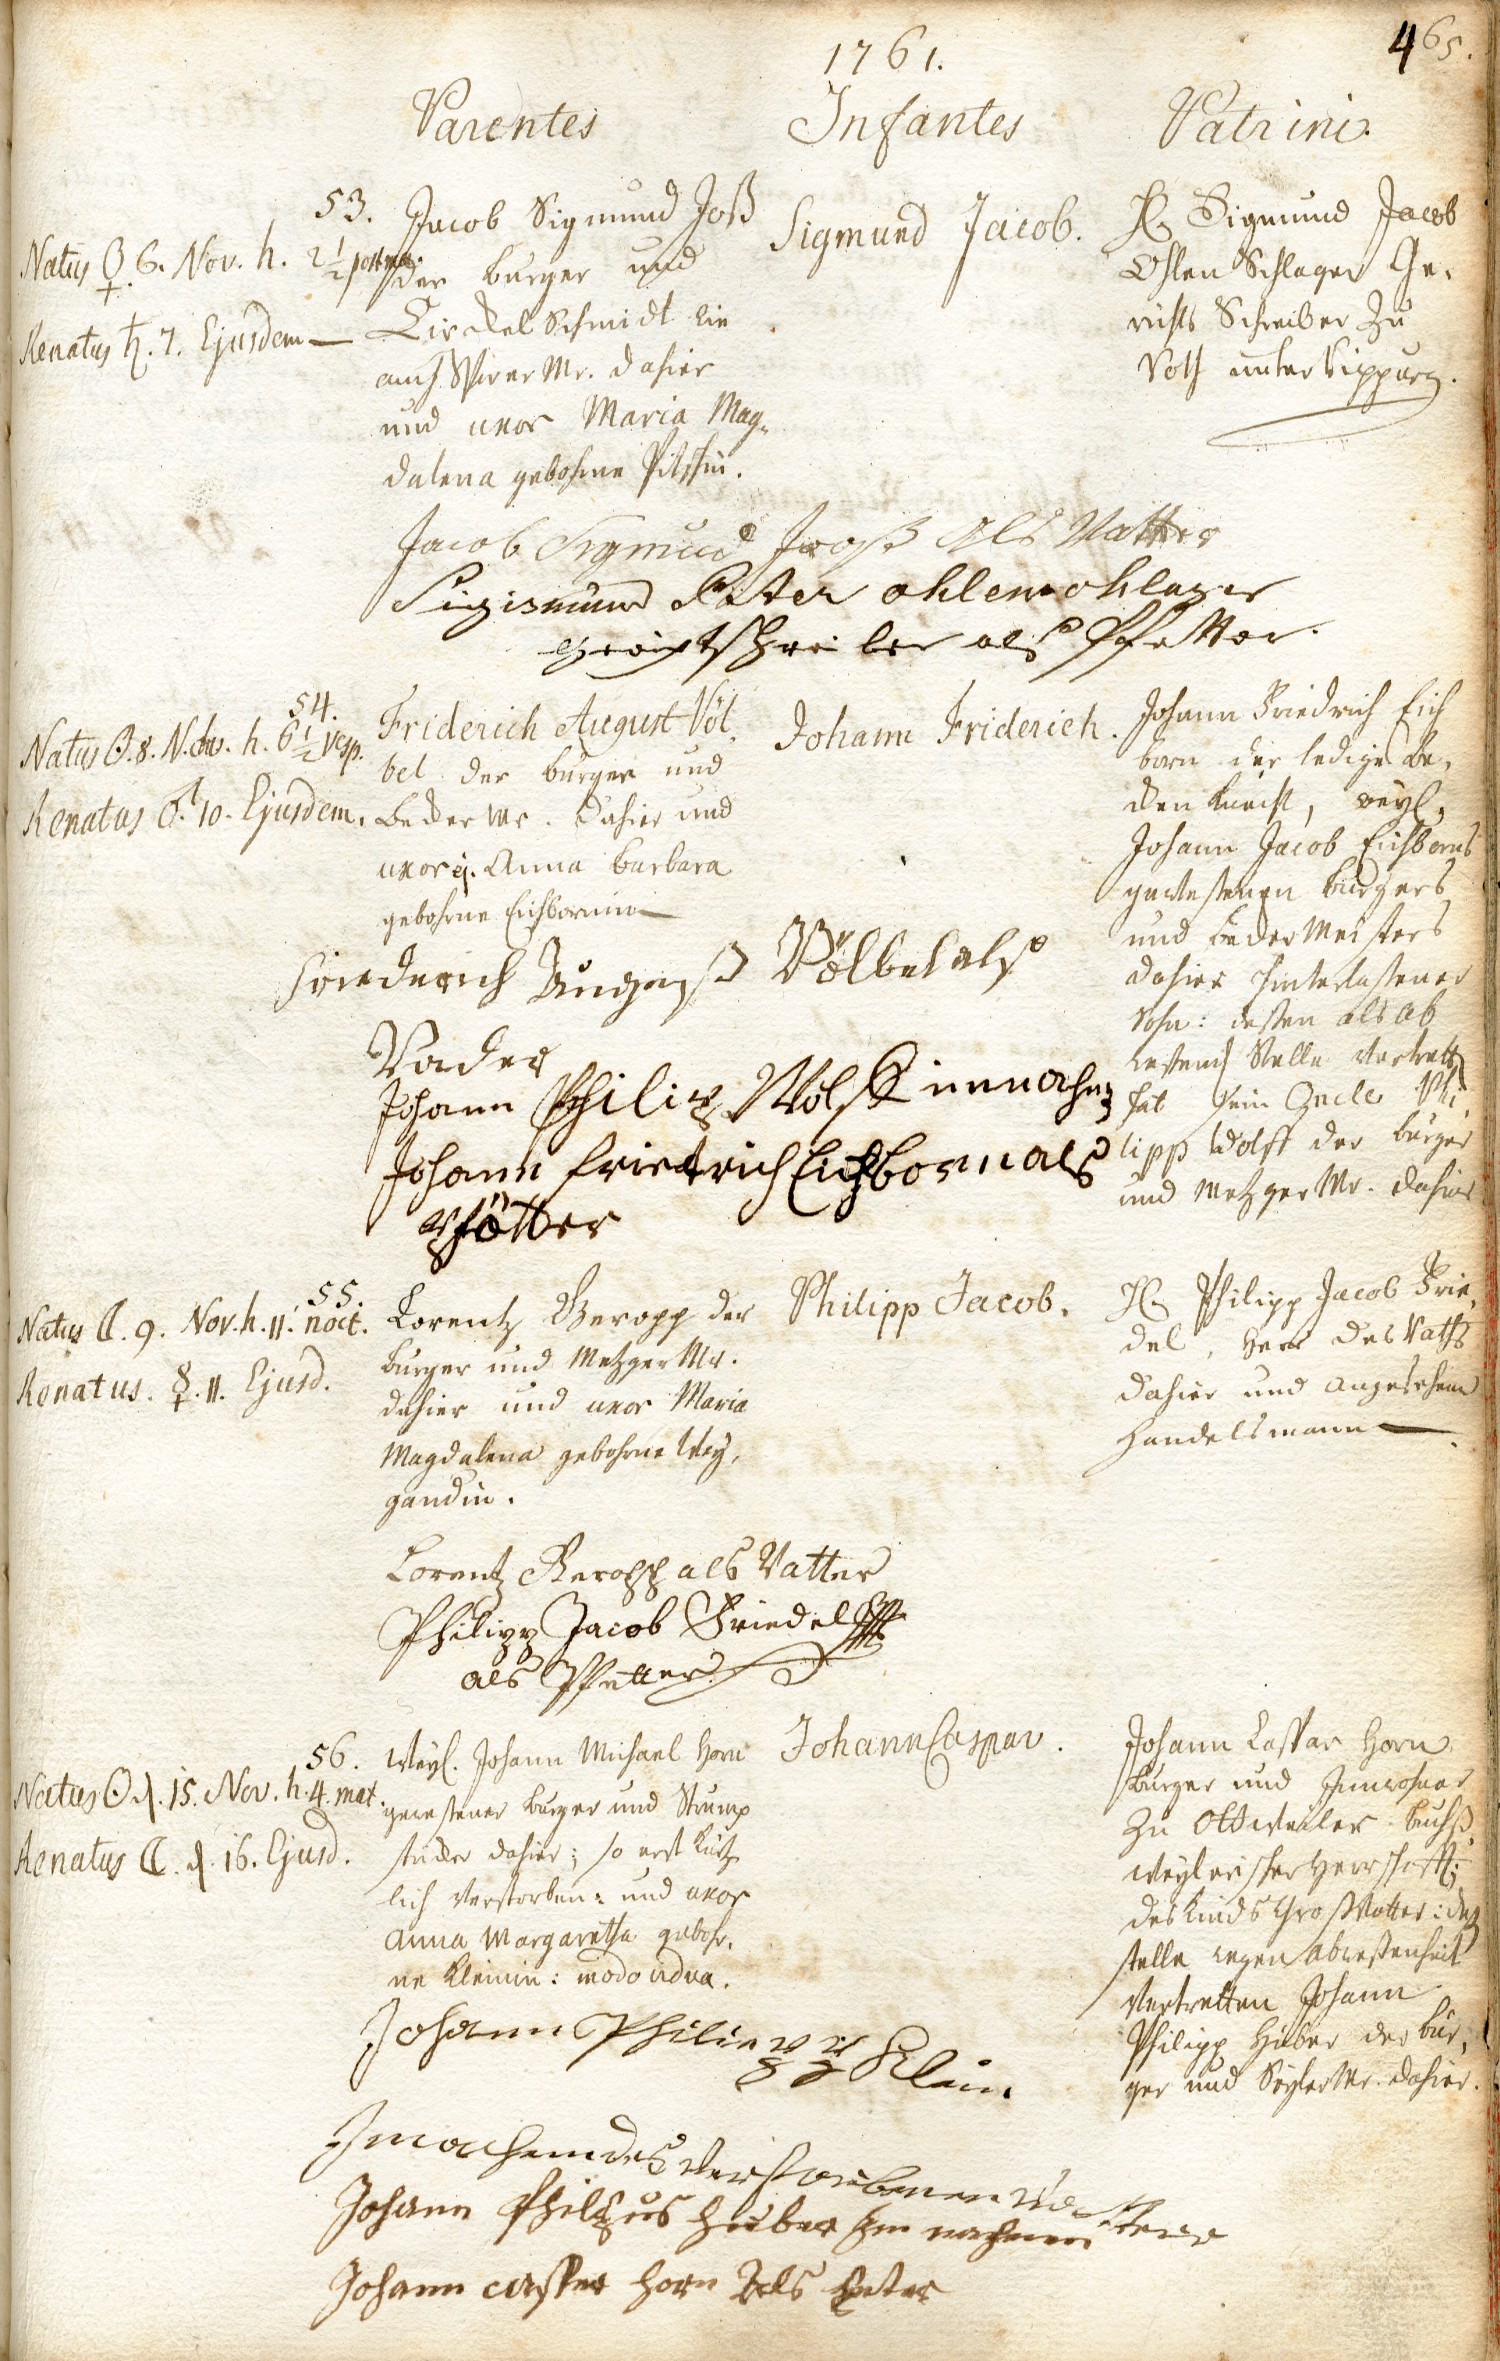 465.
1761.
Parentes Infantes Patrini.
53.
Natus ♀ 6. Nov. h. 2 1/2 post m.
Renatus ♄. 7. Ejusdem
Jacob Sigmund Joß
der burger und
Zirckel Schmidt wie
auch Mr. dahier
und uxor Maria Mag-
dalena gebohrne
Sigmund Jacob.
H. Sigmund Jacob
Ohlen Schlager Ge-
richts Schreiber zu
Roth unter
Jacob Sigmud Jooß Als Vatter
Sigismund Pater ohlenschlager
gerichtschreiber als Pfetter.
54.
Natus ☉. 8. N.bris. h. 6 1/2 vesp.
Renatus ♂. 10. Ejusdem.
Friderich August Völ-
bel der burger und
Becker Mr. dahier und
uxor ej. Anna Barbara
gebohrne Eichbornin
Johann Friderich.
Johann Friedrich Eich
born der ledige Be-
cken Knecht, weyl.
Johann Jacob Eichborns
gewesenen burgers
und Becker Meisters
dahier hinterlassener
Sohn: dessen als ab
wesend Stelle vertretten
hat sein Oncle Phi-
lipp Wolff der burger
und Metzger Mr. dahier
Friederich August Völbel als
Vader
Johann Philip Wolff im nahmen
Johann friedrich Eichborn als
Pfötter
55.
Natus ☾. 9. Nov. h. 11. noct.
Renatus. ☿. 11. Ejusd.
Lorentz Geropp der
burger und Metzger Mr.
dahier und uxor Maria
Magdalena gebohrne Wey-
gandin.
Philipp Jacob.
H. Philipp Jacob Frie-
del, Herr des Raths
dahier und angesehener
Handelsmann
Lorentz Geropp als Vatter
Philipp Jacob Friedel
als Pfetter
56.
Natus ☉ d. 15. Nov. h. 4. mat.
Renatus ☾. d. 16. Ejusd.
Weyl. Johann Michael Horn
gewesener burger und Strumpf
stricker dahier; so erst kürtz-
lich verstorben: und uxor
Anna Margaretha gebohr-
ne Kleinin: modo vidua.
Johann Caspar.
Johann Caspar Horn
burger und Innwohner
zu Ottweiler buchs-
weylerischer Herrschafft;
des Kinds Großvatter: deß
stelle wegen abwesenheit
vertretten Johann
Philipp Huber der bur-
ger und Seyler Mr. dahier.
Johann Philipp Klein.
Im nahmen des verstorbenen Vatters
Johann Philipus Huber im nahmen
Johann casper Horn Als Peter